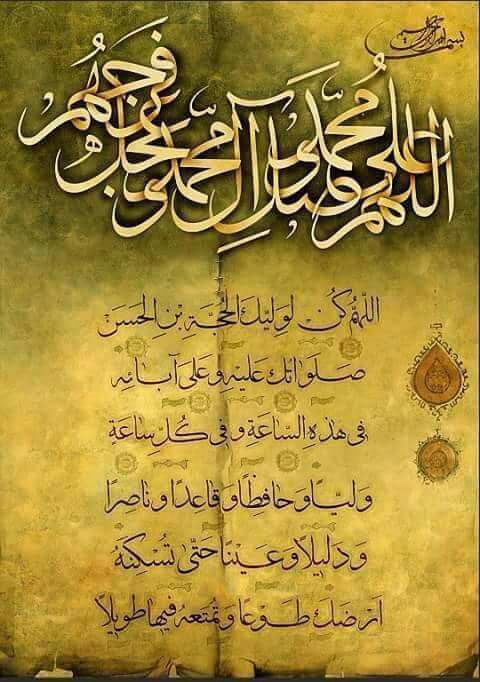 بسم الله الرحمن الرحیم
اللهم صل علی محمد و آل محمد و عجل فرجهم
اللّٰهُمَّ كُنْ لِوَلِيِّكَ الحُجَّةِ بْنِ الحَسَنْ
صَلَواتُكَ عَلَيْهِ وَ عَلى آبائِه
فى هٰذِهِ السّاعَةِ وَ فى كُلِّ ساعَةٍ
وَلِيّاً وَ حافِظاً وَ قاعِداً وَ ناصِراً
وَ دَليلاً وَ عَيْناً حَتّى تُسْكِنَهُ
اَرْضَكَ طَوْعاً وَ تُمَتِّعَهُ فيها طَويلاً